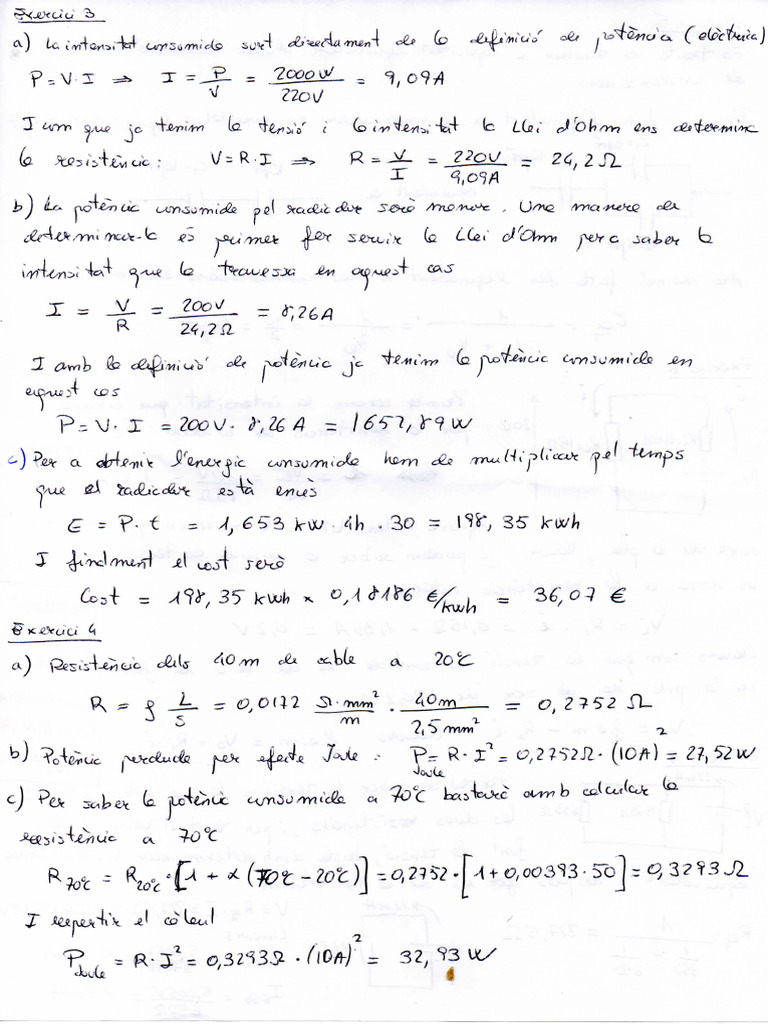 Exercici 3
a) La intensitat consumida surt directament de la definició de potència (elèctrica)
P = V·I ⇒ I = P/V = 2000W/220V = 9,09A
I com que ja tenim la tensió i la intensitat la Llei d'Ohm ens determina
la resistència: V = R·I ⇒ R = V/I = 220V/9,09A = 24,2Ω
b) La potència consumida pel radiador serà menor. Una manera de
determinar-la és primer fer servir la Llei d'Ohm per a saber la
intensitat que la travessa en aquest cas
I = V/R = 200V/24,2Ω = 8,26A
I amb la definició de potència ja tenim la potència consumida en
aquest cas
P = V·I = 200V·8,26A = 1652,89W
c) Per a obtenir l'energia consumida hem de multiplicar pel temps
que el radiador està encès
E = P·t = 1,653 kW·4h·30 = 198,35 kWh
I finalment el cost serà
Cost = 198,35 kWh × 0,18186 €/kWh = 36,07 €
Exercici 4
a) Resistència dels 40m de cable a 20ºC
R = ρ L/S = 0,0172 Ω·mm²/m · 40m/2,5mm² = 0,2752 Ω
b) Potència perduda per efecte Joule: P_Joule = R·I² = 0,2752Ω·(10A)² = 27,52W
c) Per saber la potència consumida a 70ºC bastarà amb calcular la
resistència a 70ºC
R_70ºC = R_20ºC·[1 + α(70ºC − 20ºC)] = 0,2752·[1 + 0,00393·50] = 0,3293 Ω
I repetir el càlcul
P_Joule = R·I² = 0,3293Ω·(10A)² = 32,93 W